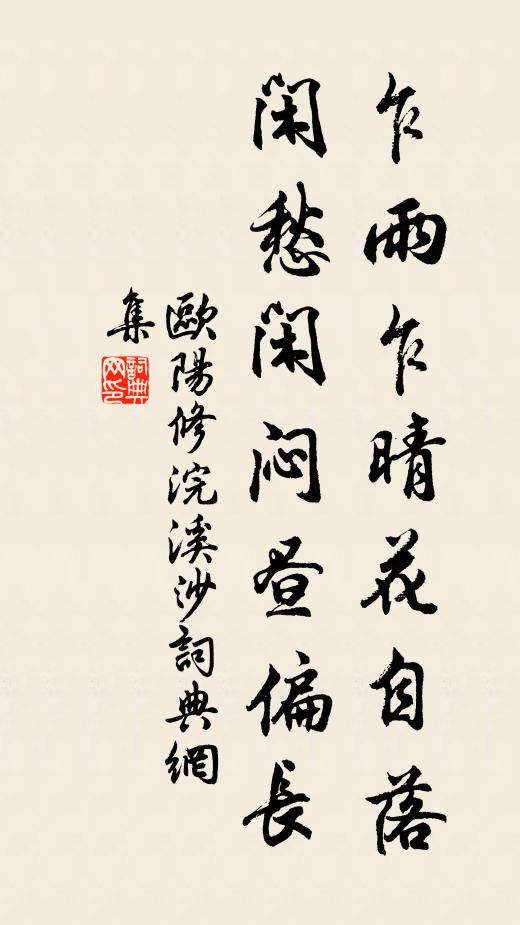 乍雨乍晴花自落
闲愁闲闷昼偏長
歐陽修浣溪沙詞典網
集
詞典
网印